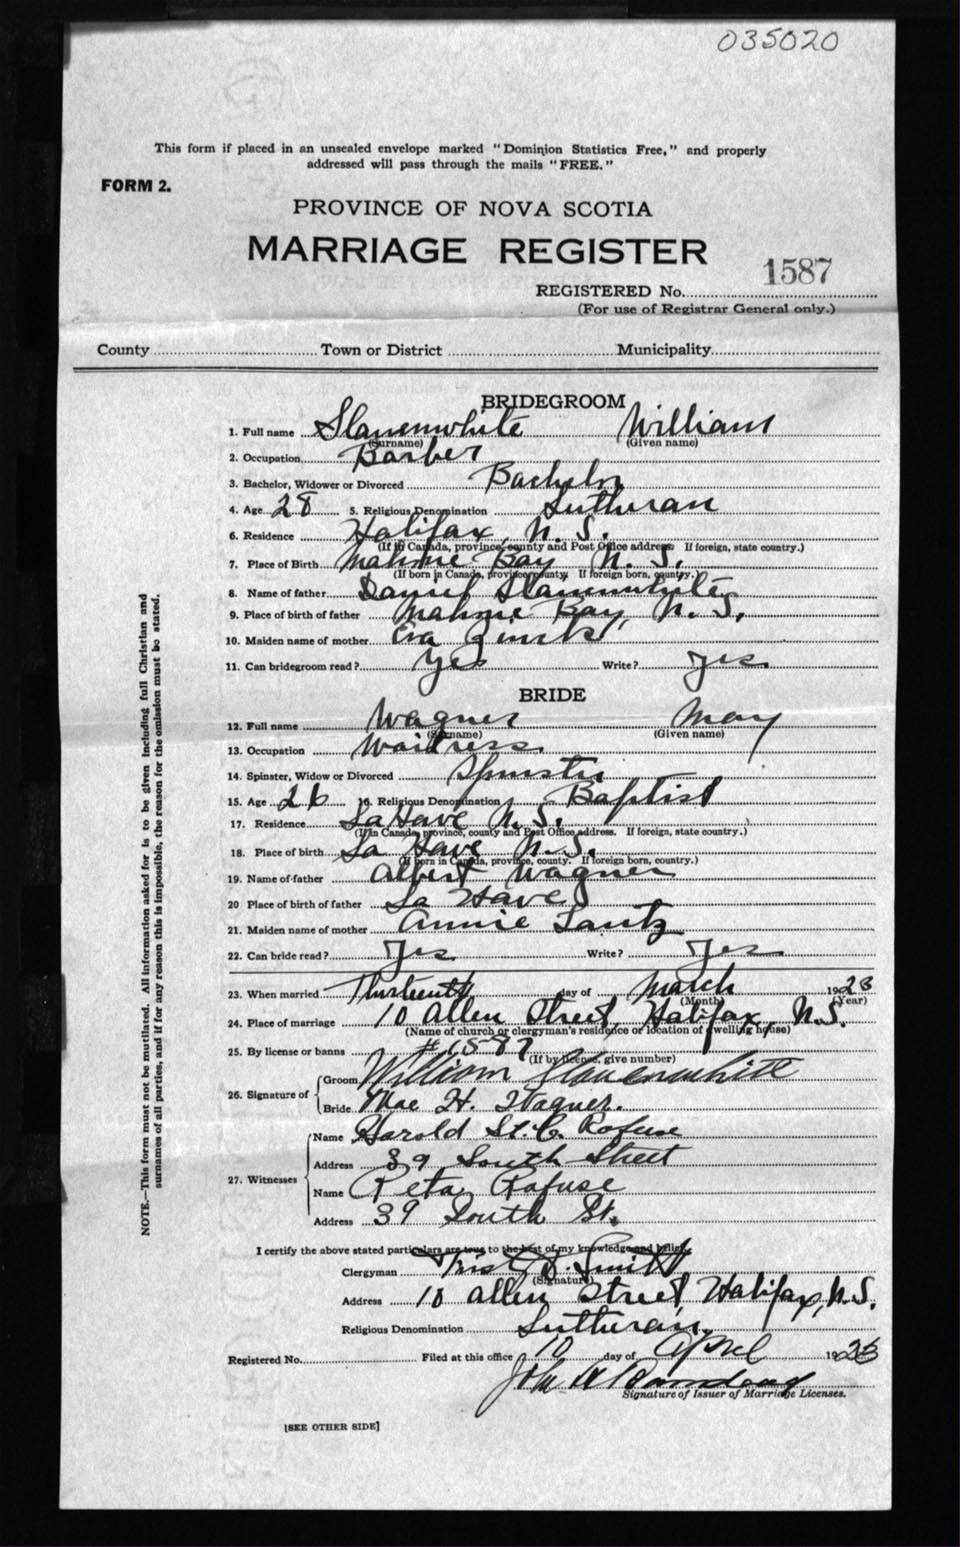 035020
This form if placed in an unsealed envelope marked "Dominion Statistics Free," and properly
addressed will pass through the mails "FREE."
FORM 2.
PROVINCE OF NOVA SCOTIA
MARRIAGE REGISTER
REGISTERED No. 1587
(For use of Registrar General only.)
County Town or District Municipality
BRIDEGROOM
1. Full name Slauenwhite William
(Surname) (Given name)
2. Occupation Barber
3. Bachelor, Widower or Divorced Bachelor
4. Age 28 5. Religious Denomination Lutheran
6. Residence Halifax, N.S.
(If in Canada, province, county and Post Office address. If foreign, state country.)
7. Place of Birth Mahone Bay N.S.
(If born in Canada, province, county. If foreign born, country.)
8. Name of father Daniel Slauenwhite
9. Place of birth of father Mahone Bay, N.S.
10. Maiden name of mother Eva Zinck
11. Can bridegroom read? Yes Write? Yes
BRIDE
12. Full name Wagner May
(Surname) (Given name)
13. Occupation Waitress
14. Spinster, Widow or Divorced Spinster
15. Age 26 16. Religious Denomination Baptist
17. Residence LaHave N.S.
(If in Canada, province, county and Post Office address. If foreign, state country.)
18. Place of birth La Have N.S.
(If born in Canada, province, county. If foreign born, country.)
19. Name of father Albert Wagner
20 Place of birth of father La Have
21. Maiden name of mother Annie Lantz
22. Can bride read? Yes Write? Yes
23. When married Thirteenth day of March 1923
(Month) (Year)
24. Place of marriage 10 Allen Street, Halifax, N.S.
(Name of church or clergyman's residence or location of dwelling house)
25. By license or banns #1587
(If by license, give number)
26. Signature of
Groom William Slauenwhite
Bride Mae H. Wagner.
27. Witnesses
Name Harold St. C. Rafuse
Address 39 South Street
Name Reta Rafuse
Address 39 South St.
I certify the above stated particulars are true to the best of my knowledge and belief.
Clergyman Smith
(Signature)
Address 10 Allen Street, Halifax, N.S.
Religious Denomination Lutheran.
Registered No. Filed at this office 10 day of April 1923
John
Signature of Issuer of Marriage Licenses.
[SEE OTHER SIDE]
NOTE.—This form must not be mutilated. All information asked for is to be given including full Christian and
surnames of all parties, and if for any reason this is impossible, the reason for the omission must be stated.